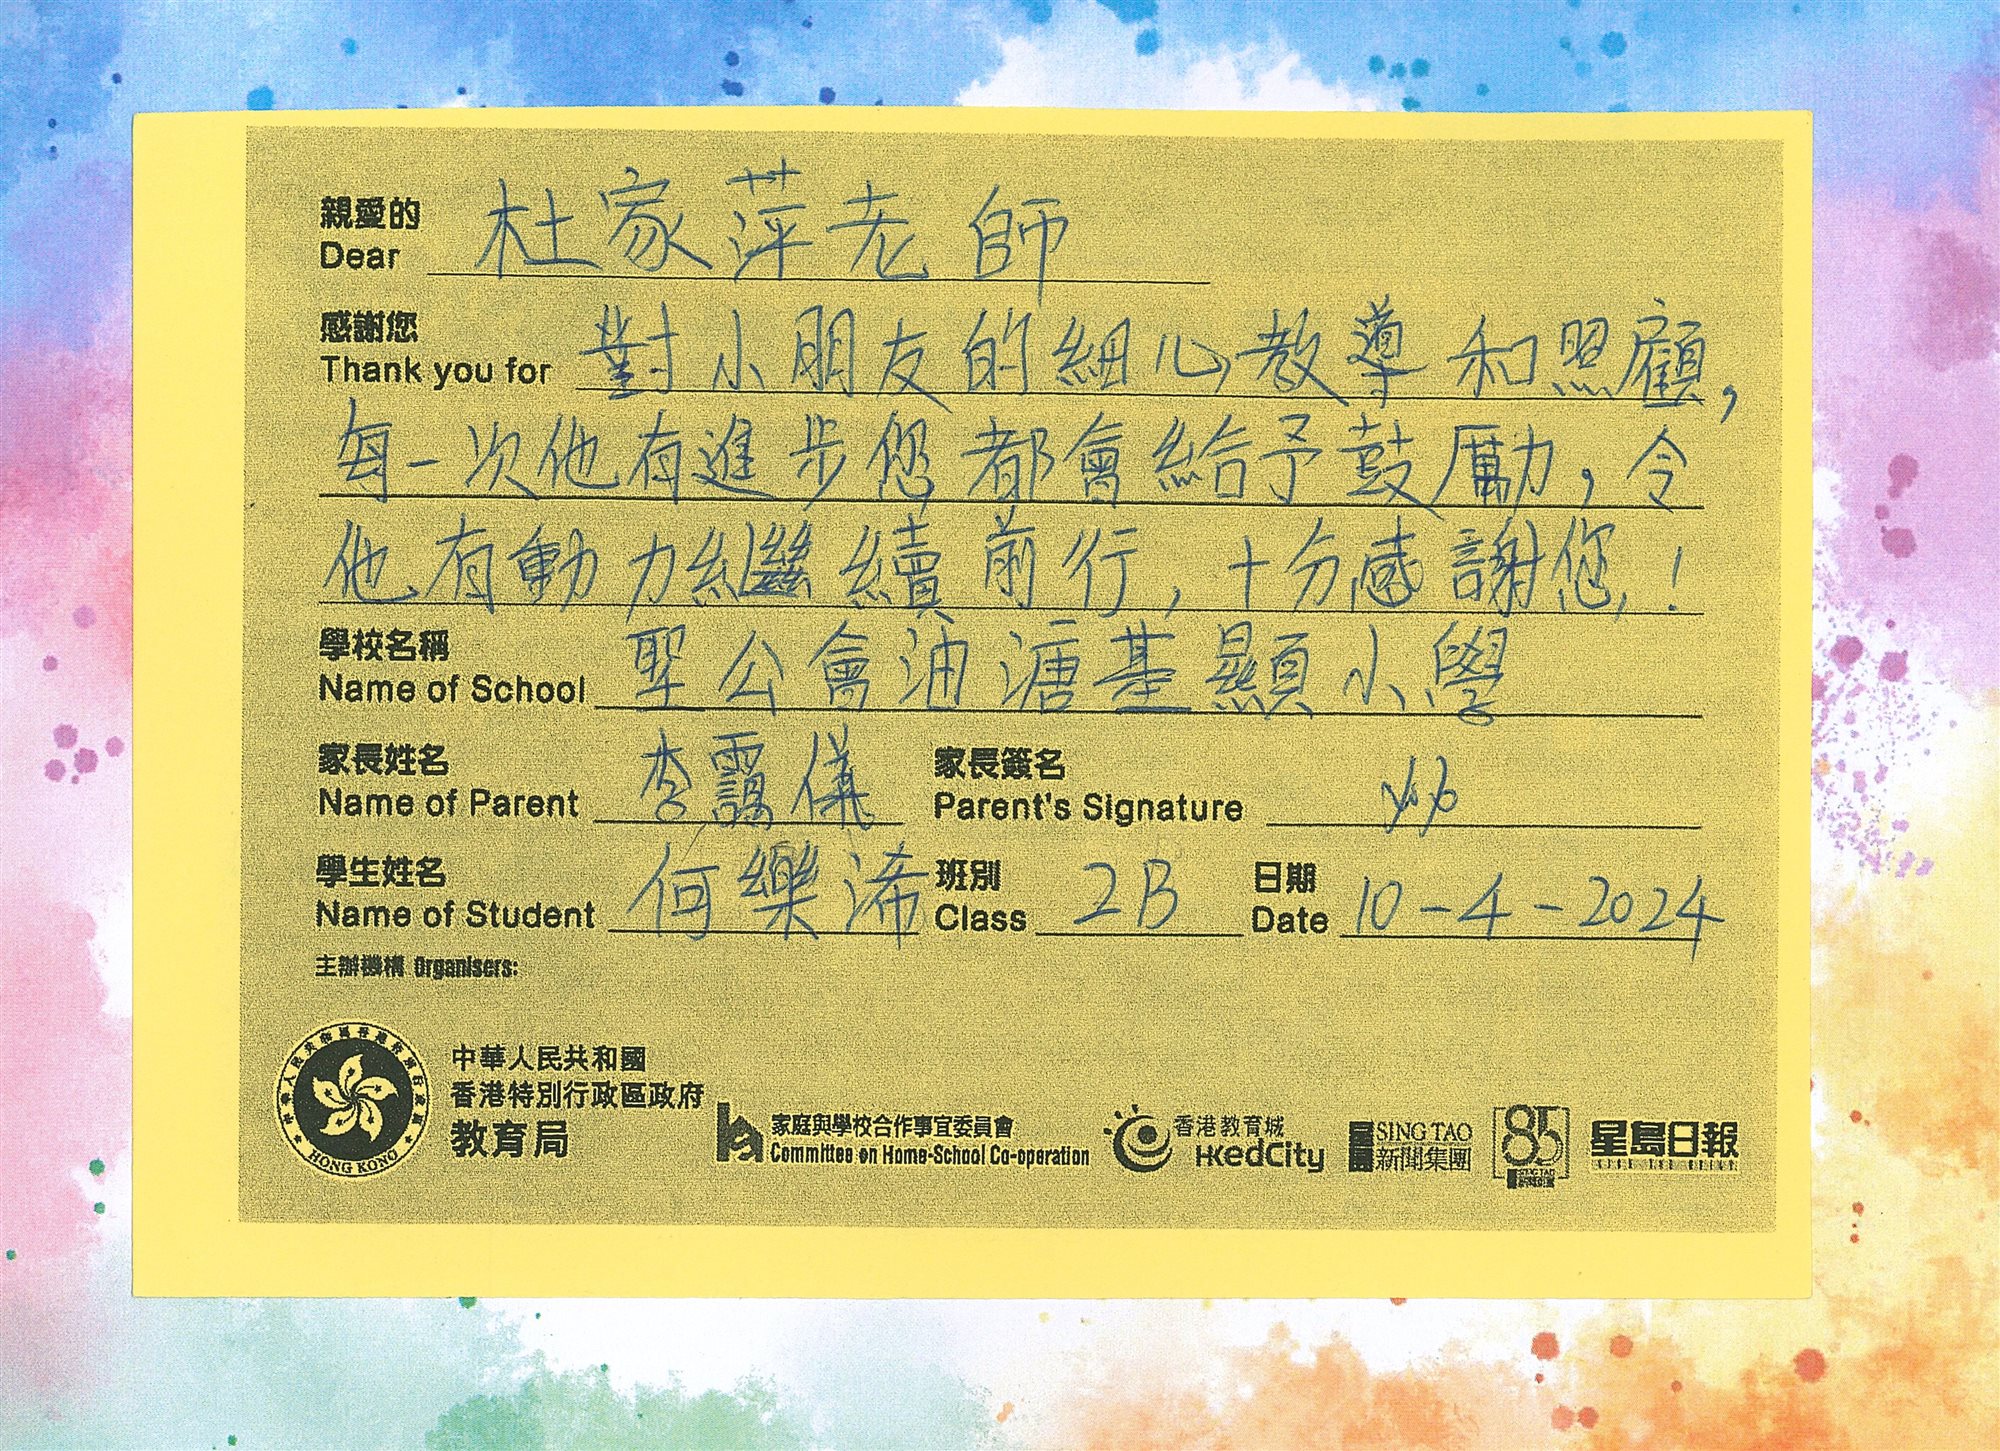 親愛的
Dear 杜家萍老師
感謝您
Thank you for 對小朋友的細心教導和照顧,
每一次他有進步您都會給予鼓勵,令
他有動力繼續前行,十分感謝您!
學校名稱
Name of School 聖公會油塘基顯小學
家長姓名 家長簽名
Name of Parent 李靄儀 Parent's Signature
學生姓名 班別 日期
Name of Student 何樂浠 Class 2B Date 10-4-2024
主辦機構 Organisers:
中華人民共和國香港特別行政區政府
HONG KONG
中華人民共和國
香港特別行政區政府
教育局
家庭與學校合作事宜委員會
Committee on Home-School Co-operation
香港教育城
HKedCity
SING TAO
新聞集團
85
星島日報